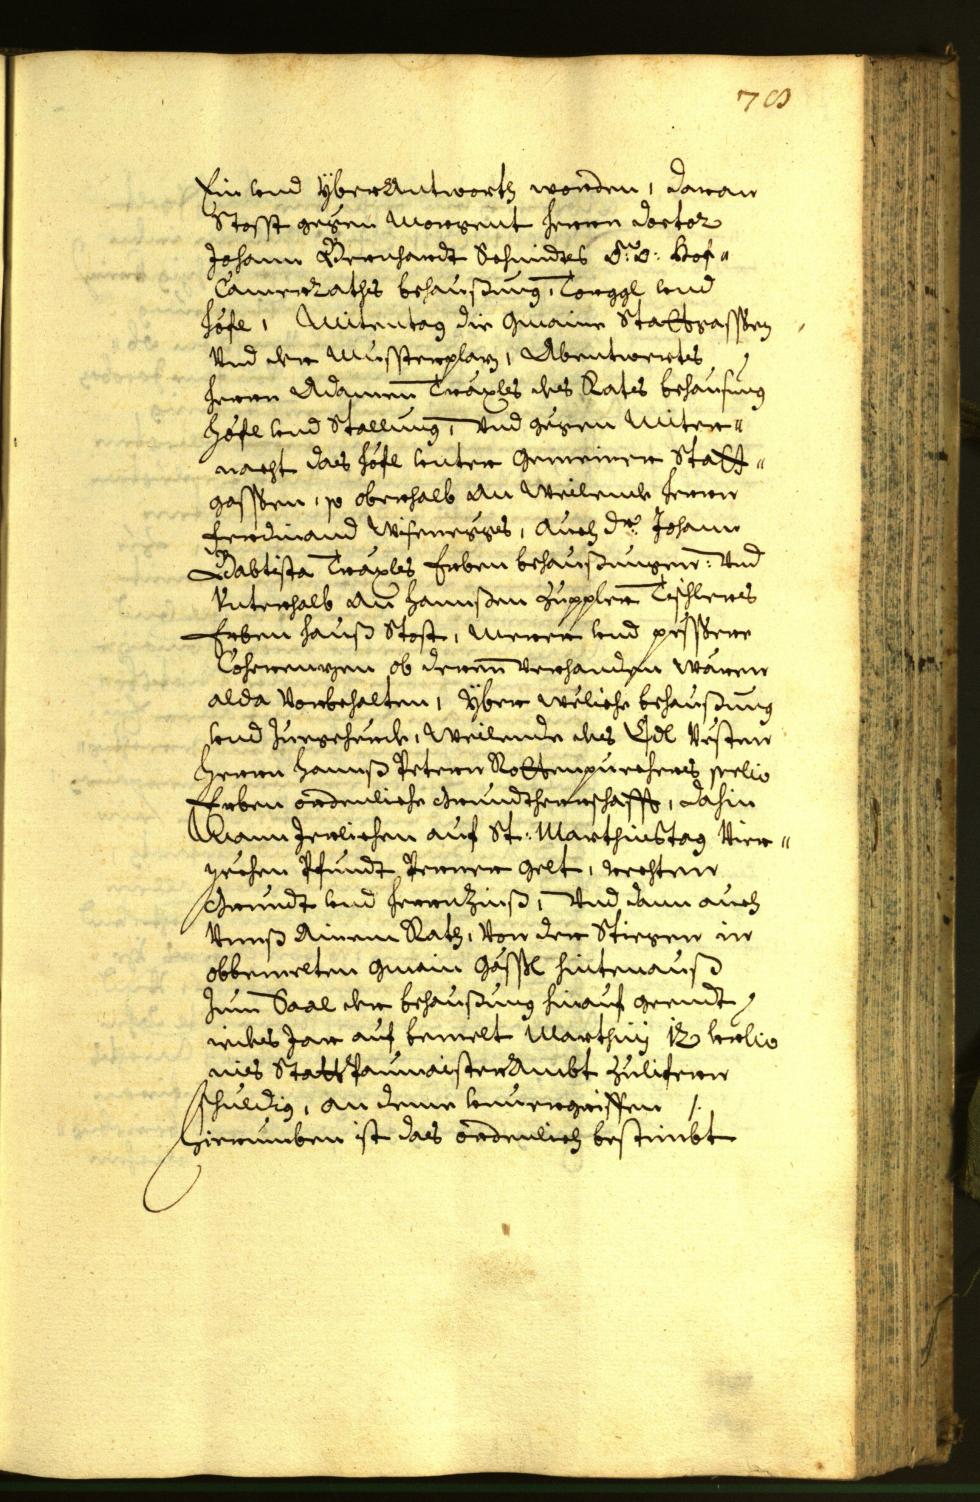 78
Ein und yberAntworth worden, daran
Stosst gegen Morgent Herrn doctor
Johann Bernhardt Schmidts Ö: Ö: Hof„
CamerRaths behaußung, Torggl und
höfl, Mitentag die Gmaine Stattgassßen
Und der Musterplaz, Abentwerts
Herrn Adamen Träxls des Rats behausung
höfl und Stallung, Und gegen Miter„
nacht das höfl unter Gemeiner Statt„
gassßen, so oberhalb an Weilende Herrn
Ferdinand Wisenegges, Auch Dr: Johann
Babtista Träxls Erben behaußungen: Und
Unterhalb An Hannßen Zupplen Tischlers
Erben hauß Stost, Merer und pesßere
Coherenzen ob deren verhanden wären
alda Vorbehalten, Yber weliche behaußung
und Zuegehende, Weilende des Edl Vesten
Herrn Hannß Petern Rottenpuechers selig
Erben ordenliche Grundtherrschafft, dahin
Mann Jerlichen auf St: Marthinstag Vier„
zechen Pfundt Perner Gelt, rechten
Grundt und HerrnZinß, Und dann auch
Unnß Ainem Rath, Von der Stiegen in
obbemelten Gmain Gässßl hintenauß
Zum Saal der behaußung hinauf geendt
iedes Jar auf bemelt Marthinj 12
StattPaumaisterAmbt Zulifern
schuldig, an deme unvergriffen /:
Hierumben ist das ordenlich bestimbt